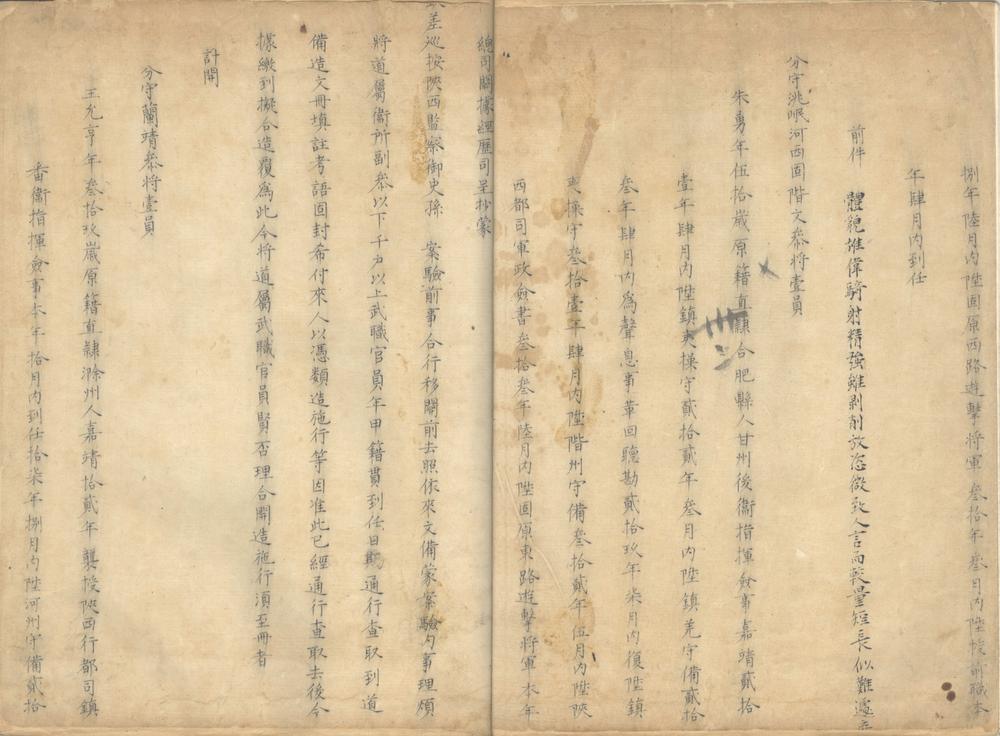 捌年陸月內陞固原西路遊擊將軍叁拾年叁月內陞授前職本
年肆月內到任
前件 體貌推偉騎射精強雖剥削放恣微致人言而較量短長似難遽
分守洮岷河西固階文叅將壹員
朱勇年伍拾歲原籍直隸合肥縣人甘州後衞指揮僉事嘉靖貳拾
壹年肆月內陞鎮夷操守貳拾貳年叁月內陞鎮羌守備貳拾
叁年肆月內爲聲息事革回聽勘貳拾玖年柒月內復陞鎮
夷操守叁拾壹年肆月內陞階州守備叁拾貳年伍月內陞陝
西都司軍政僉書叁拾叁年陸月內陞固原東路遊擊將軍本年
總司關據經歷司呈抄蒙
差巡按陝西監察御史孫 案驗前事合行移關前去照依來文備蒙案驗內事理煩
將道屬衞所副叅以下千戶以上武職官員年甲籍貫到任日期通行查取到道
備造文冊填註考語固封希付來人以憑類造施行等因准此已經通行查取去後今
據繳到擬合造覆爲此今將道屬武職官員賢否理合開造施行須至冊者
計開
分守蘭靖叅將壹員
王允亨年叁拾玖歲原籍直隸滁州人嘉靖拾貳年襲授陝西行都司鎮
番衞指揮僉事本年拾月內到任拾柒年捌月內陞河州守備貳拾